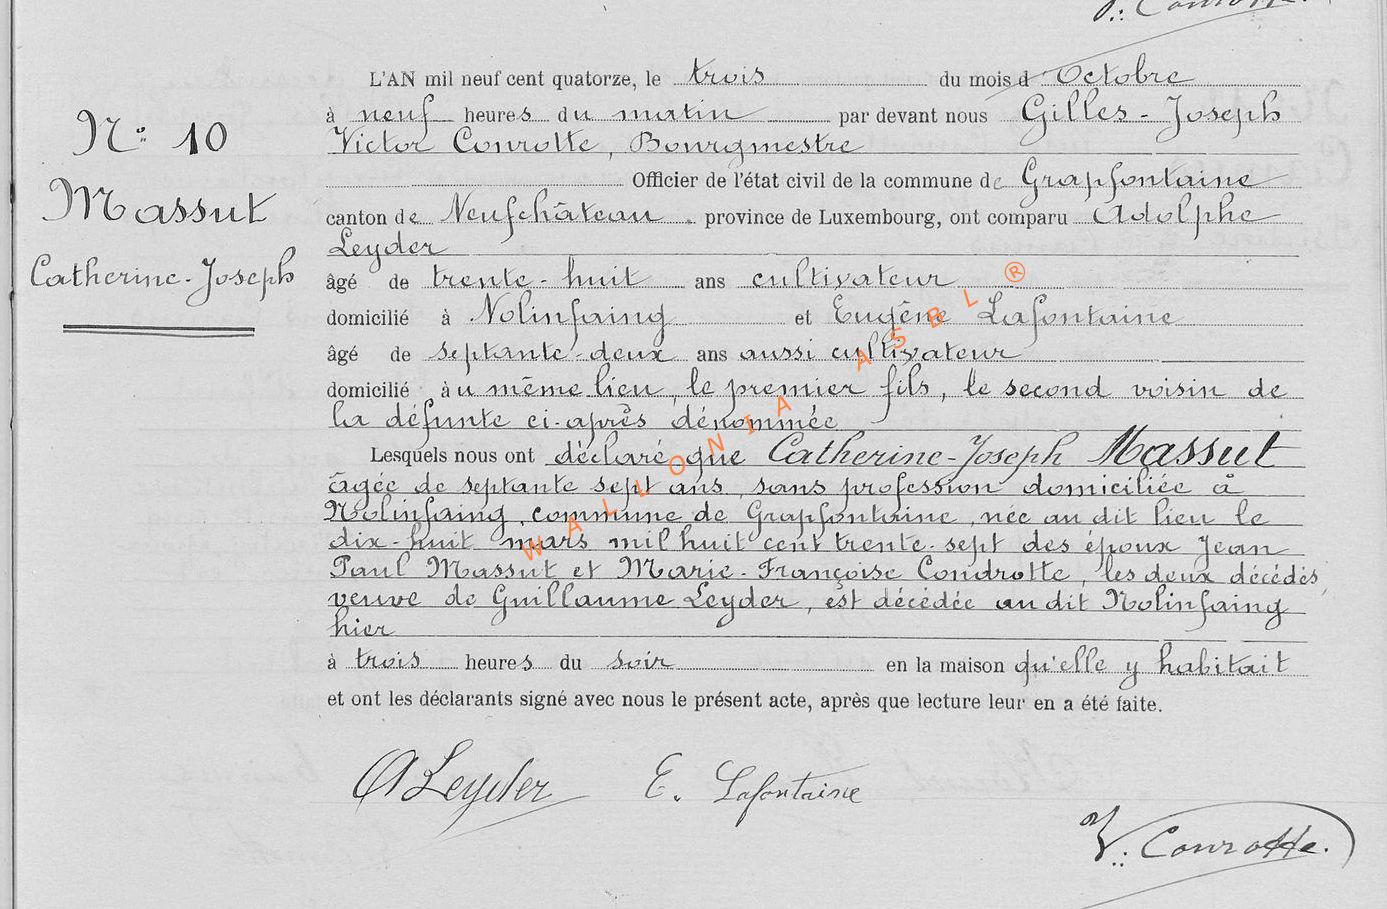 V.: Conrotte.
L'AN mil neuf cent quatorze, le trois du mois d'Octobre
à neuf heures du matin par devant nous Gilles-Joseph
Victor Conrotte, Bourgmestre
Officier de l'état civil de la commune de Grapfontaine
canton de Neufchâteau, province de Luxembourg, ont comparu Adolphe
Leyder
âgé de trente-huit ans cultivateur
domicilié à Nolinfaing et Eugène Lafontaine
âgé de septante-deux ans aussi cultivateur
domicilié au même lieu, le premier fils, le second voisin de
la défunte ci-après dénommée
Lesquels nous ont déclaré que Catherine-Joseph Massut
âgée de septante sept ans, sans profession domiciliée à
Nolinfaing, commune de Grapfontaine, née au dit lieu le
dix-huit mars mil huit cent trente-sept des époux Jean
Paul Massut et Marie-Françoise Condrotte, les deux décédés,
veuve de Guillaume Leyder, est décédée au dit Nolinfaing
hier
à trois heures du soir en la maison qu'elle y habitait
et ont les déclarants signé avec nous le présent acte, après que lecture leur en a été faite.
N° 10
Massut
Catherine-Joseph
A Leyder E. Lafontaine
V.: Conrotte.
WALLONIA ASBL ®